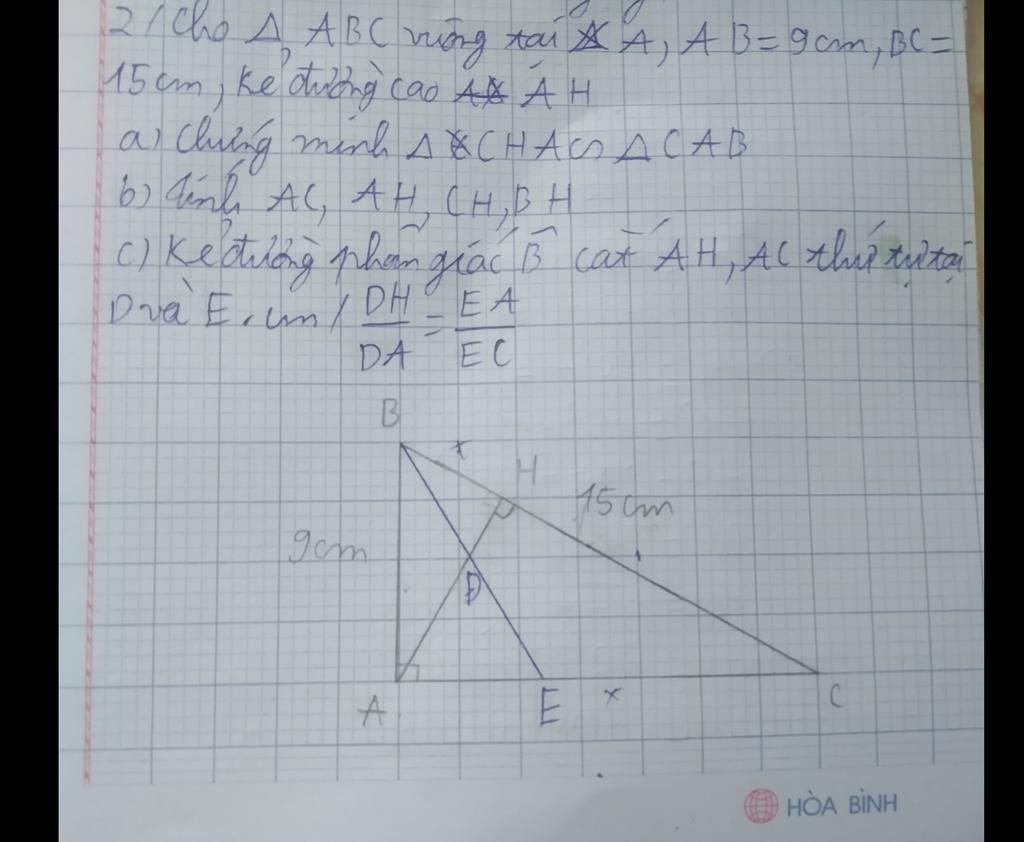 2/ Cho Δ ABC vuông tại A, AB = 9cm, BC =
15cm, Kẻ đường cao AH
a) Chứng minh Δ CHA ∽ Δ CAB
b) tính AC, AH, CH, BH
c) Kẻ đường phân giác B̂ cắt AH, AC thứ tự tại
D và E. cm / DH/DA = EA/EC
B
x
H
15cm
9cm
D
A
E
x
C
HÒA BÌNH